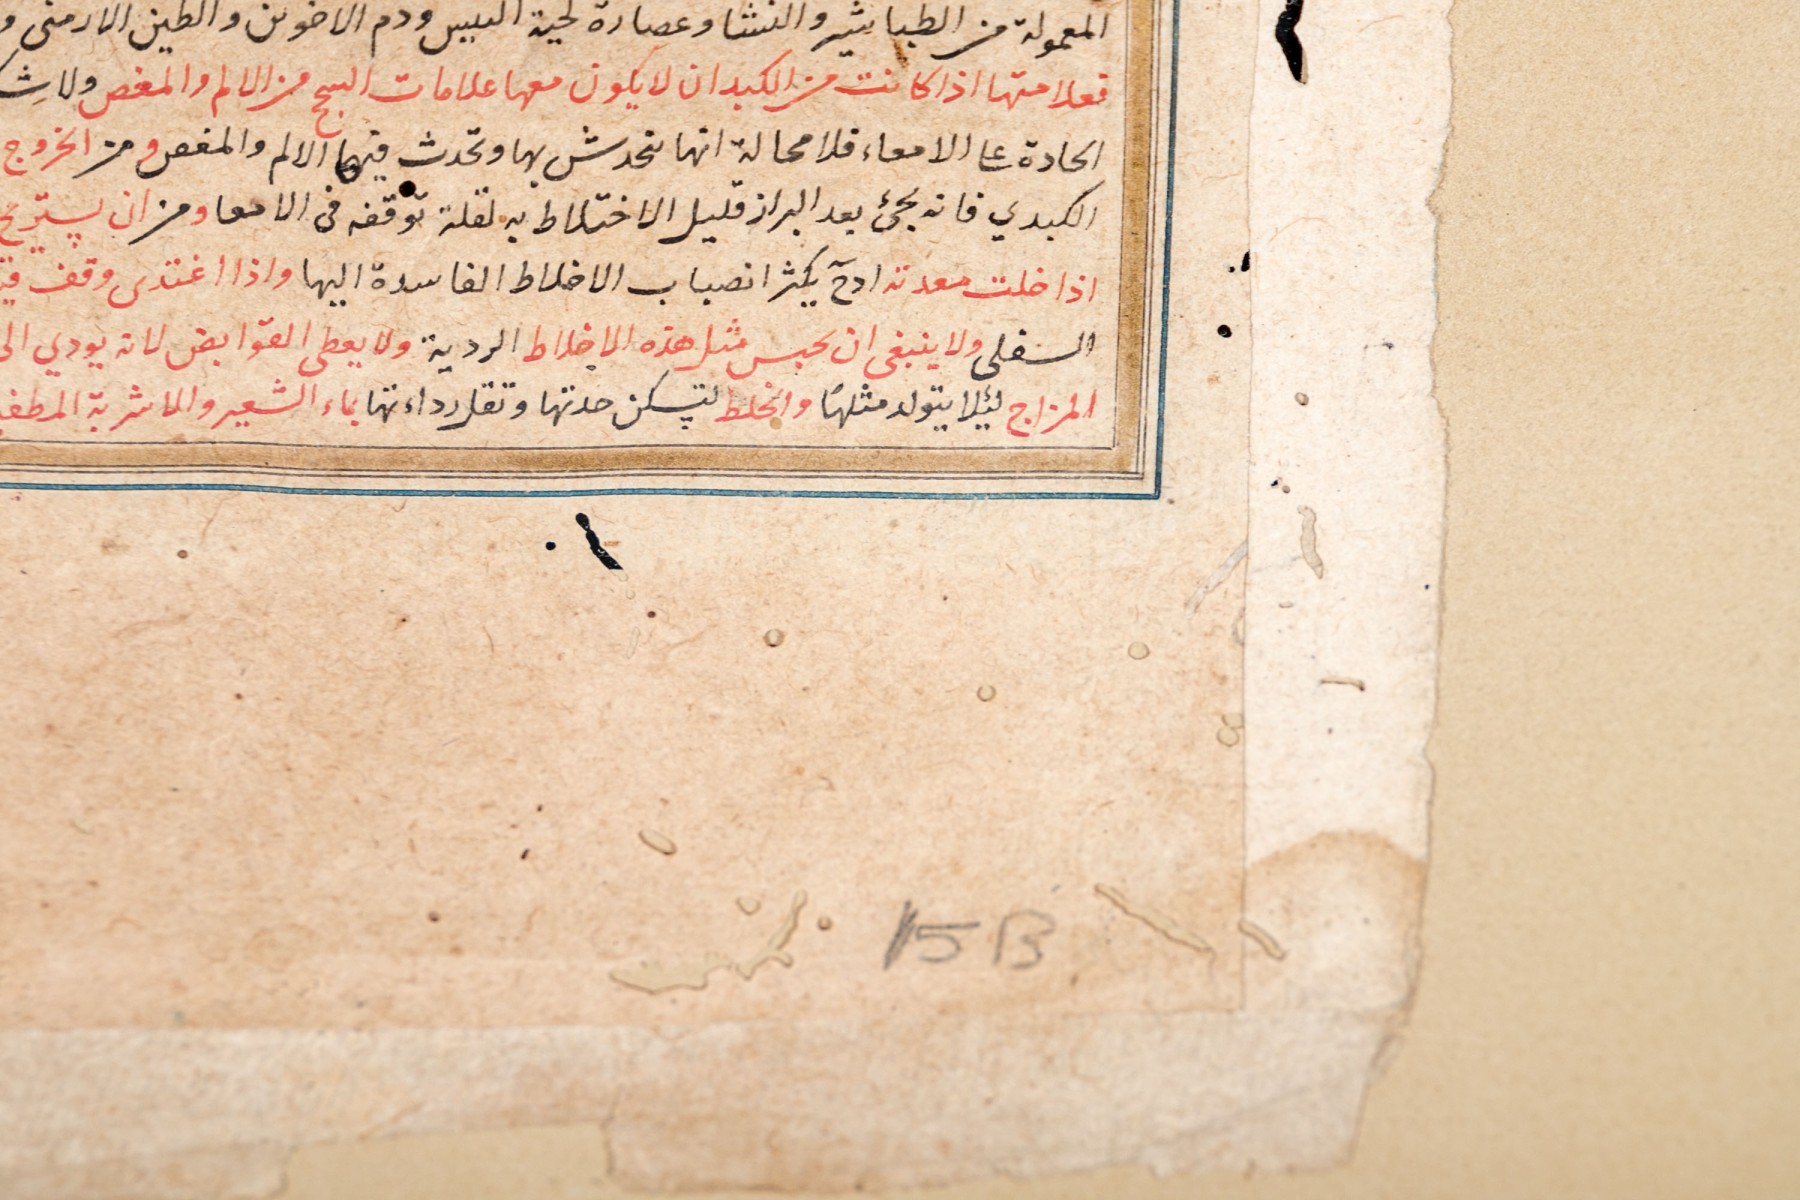 المعمولة من الطباشير والنشا وعصارة لحية التيس ودم الاخوين والطين الارمنى و
فعلامتها اذا كانت من الكبد ان لا يكون معها علامات السحج من الالم والمغص ولا
الحادة على الامعاء فلا محالة انها تخدش بها وتحدث فيها الالم والمغص و من الخروج
الكبدي فانه يجئ بعد البراز قليل الاختلاط به لقلة توقفه فى الامعا ومن ان يستريح
اذا خلت معدته اذ ح يكثر انصباب الاخلاط الفاسدة اليها واذا اغتدى وقف
السفلى ولا ينبغى ان يحبس مثل هذه الاخلاط الردية ولا يعطى القوابض لانه يودي الى
المزاج لئلا يتولد مثلها والخلط لتسكن حدتها وتقل رداءتها بماء الشعير والاشربة
15 B